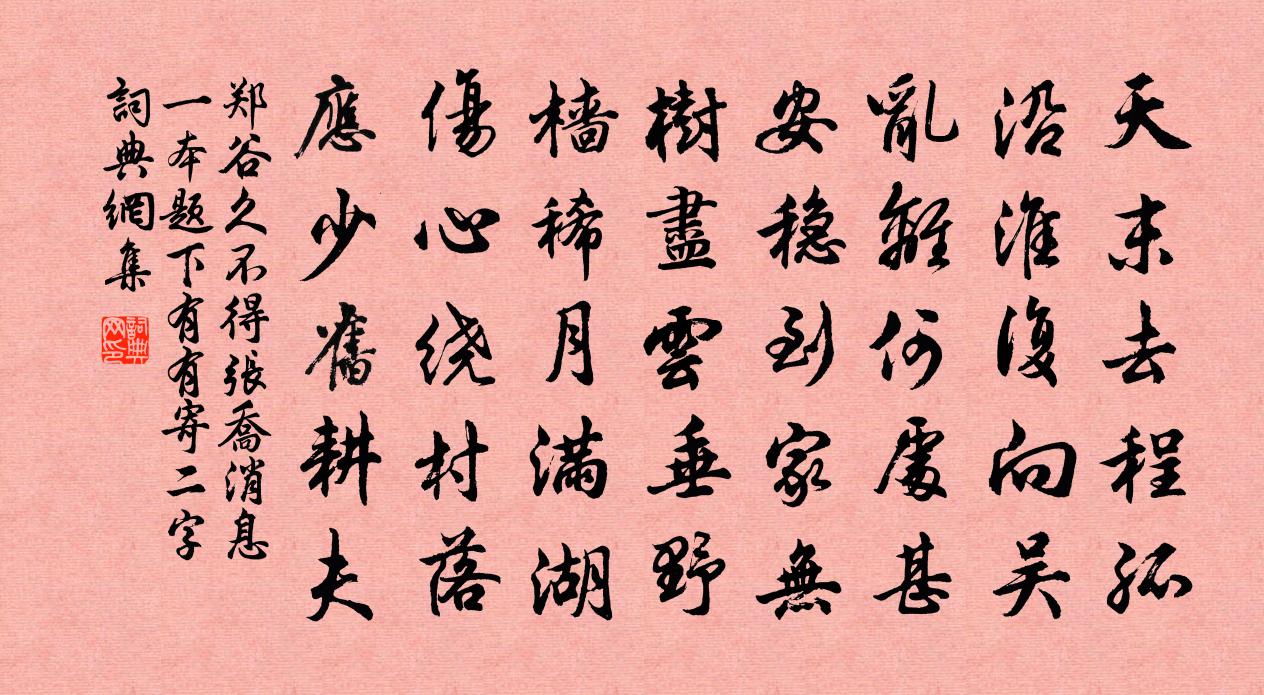 天末去程孤
沿淮復向吴
亂離何處甚
安穏到家無
樹盡雲垂野
檣稀月满湖
傷心绕村落
應少舊耕夫
郑谷久不得張喬消息
一本题下有有寄二字
詞典網集
詞典网印